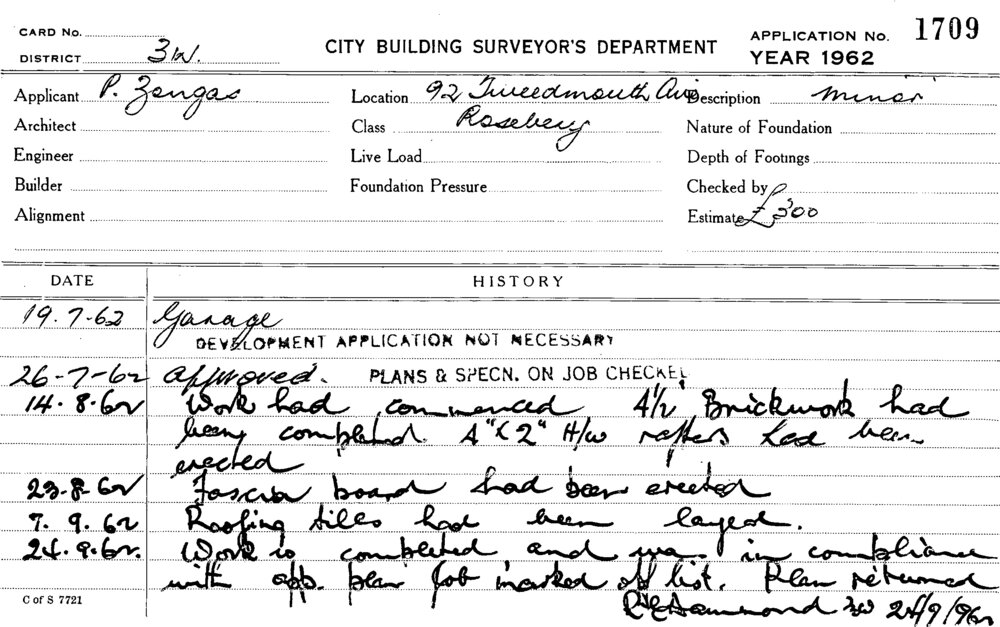 CARD No. CITY BUILDING SURVEYOR'S DEPARTMENT APPLICATION No. 1709
DISTRICT 3W. YEAR 1962
Applicant P. Zengas Location 92 Tweedmouth Ave Description minor
Architect Class Rosebery Nature of Foundation
Engineer Live Load Depth of Footings
Builder Foundation Pressure Checked by
Alignment Estimate £300
DATE HISTORY
19.7.62 Garage
DEVELOPMENT APPLICATION NOT NECESSARY
26-7-62 approved. PLANS & SPECN. ON JOB CHECKED
14.8.62 Work had commenced 4½ Brickwork had
being completed. 4"x2" H/w rafters had been
erected
23-8-62 Fascia board had been erected
7.9.62 Roofing tiles had been layed.
24.9.62. Work is completed and was in compliance
with app. plan job marked off list. Plan returned
C of S 7721 Hammond 3W 24/9/62